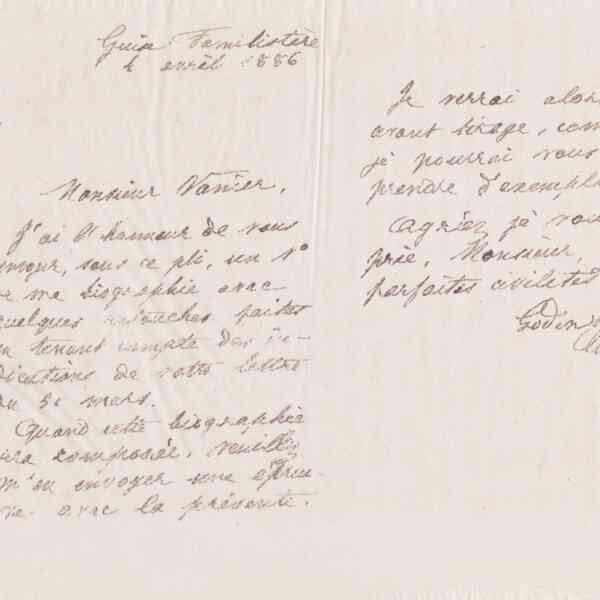 Guise Familistère
4 avril 1886
Monsieur Vanier,
J'ai l'honneur de vous
envoyer, sous ce pli, un No
de ma biographie avec
quelques retouches faites
en tenant compte des in-
dications de votre lettre
du 30 mars.
Quand cette biographie
sera composée, veuillez
m'en envoyer une épreu-
ve avec la présente.
Je verrai alors
avant tirage, com
je pourrai vous
prendre d'exempla
Agréez, je vou
prie, Monsieur,
parfaites civilités
Godin